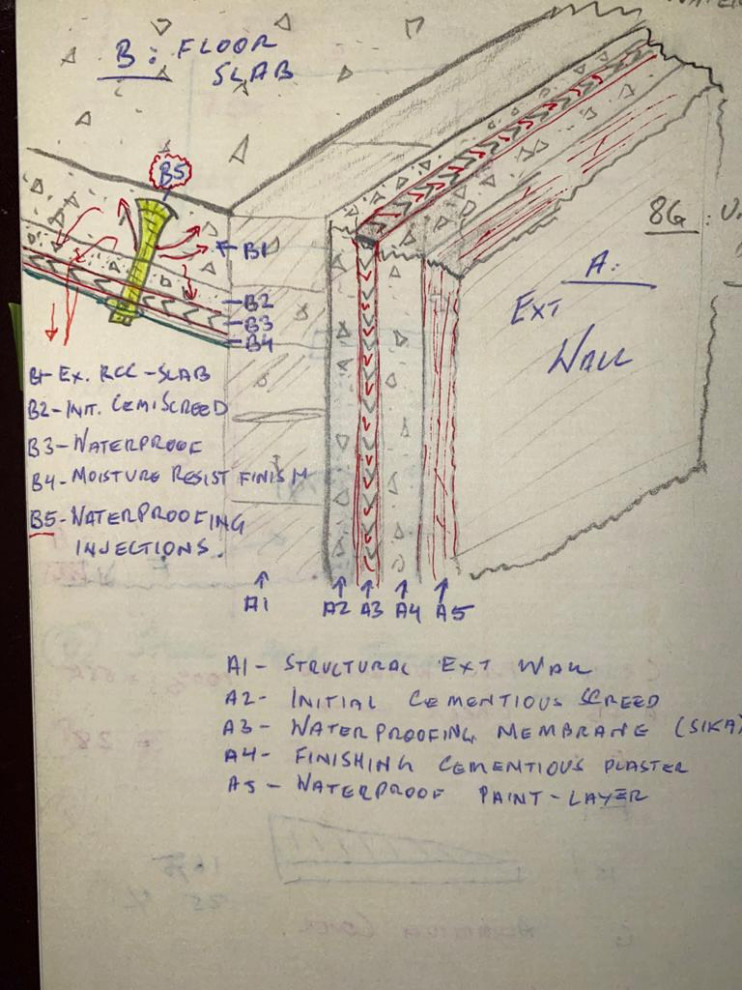 B: FLOOR
SLAB
B5
B1
B2
B3
B4
8G:
A:
EXT
WALL
B1- EX. RCC-SLAB
B2- INT. CEM. SCREED
B3- WATERPROOF
B4- MOISTURE RESIST FINISH
B5- WATERPROOFING
INJECTIONS.
A1 A2 A3 A4 A5
A1- STRUCTURAL EXT WALL
A2- INITIAL CEMENTIOUS SCREED
A3- WATERPROOFING MEMBRANE (SIKA)
A4- FINISHING CEMENTIOUS PLASTER
A5- WATERPROOF PAINT-LAYER